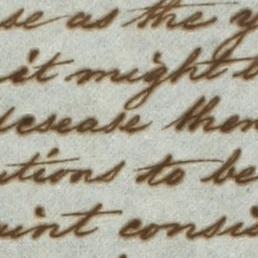 se as the y
it might b
desease then
utions to be
uint consis